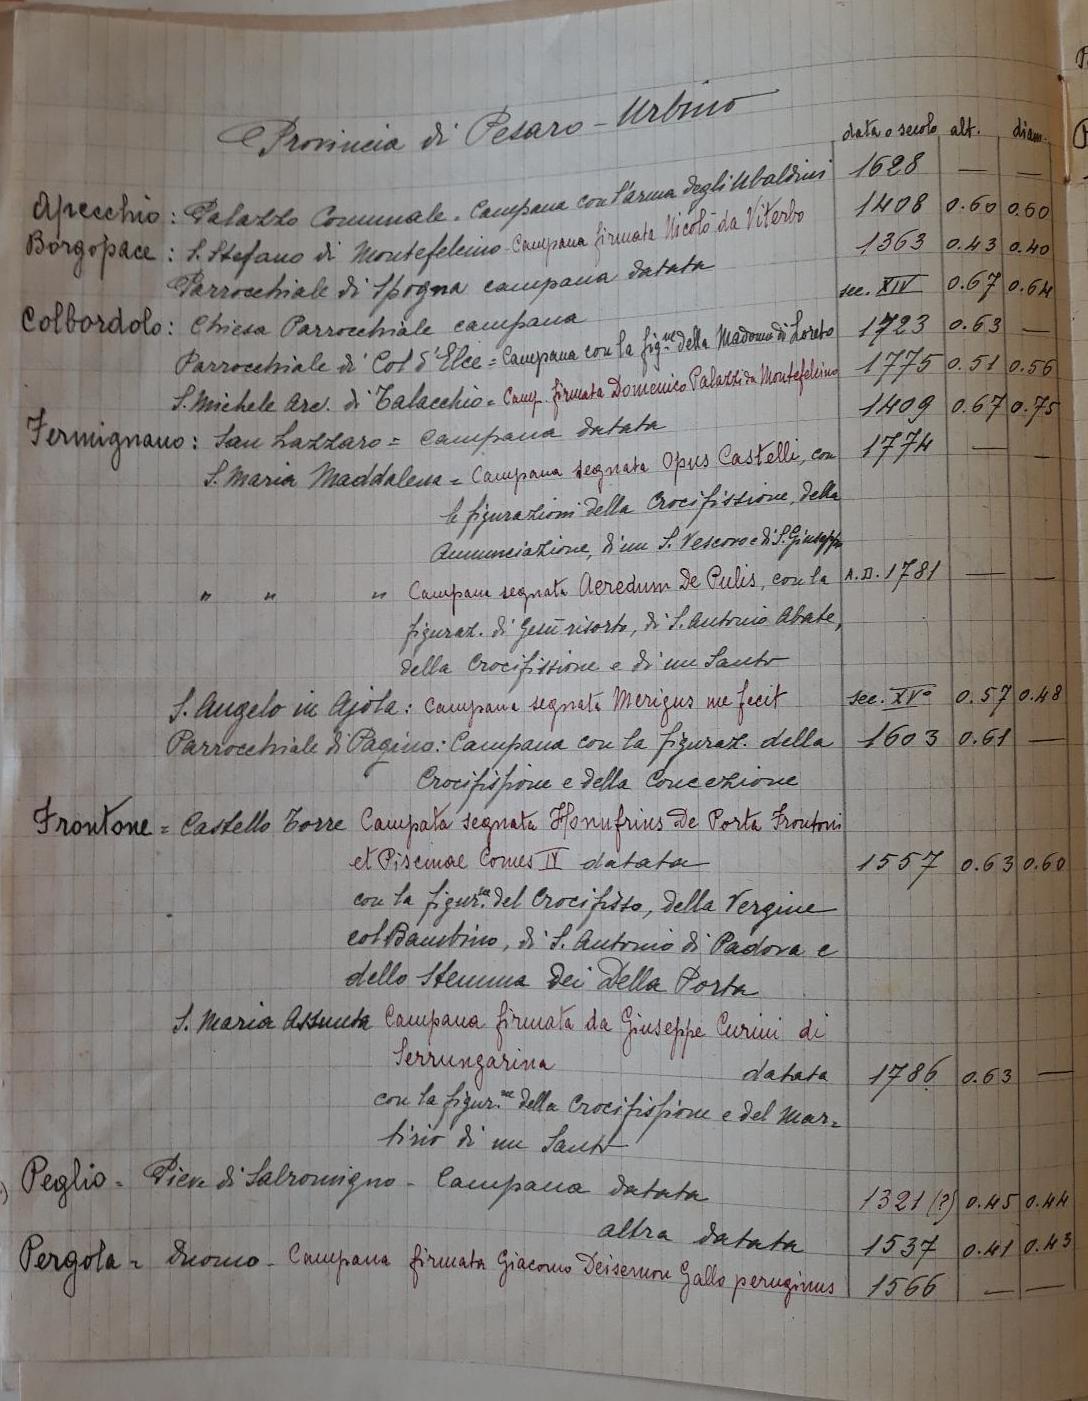 Provincia di Pesaro - Urbino
data o secolo alt. diam.
Apecchio: Palazzo Comunale - Campana con l'arma degli Ubaldini 1628 — —
Borgopace: S. Stefano di Montefelcino - Campana firmata Nicolò da Viterbo 1408 0.60 0.60
Parrocchiale di Spogna campana datata 1363 0.43 0.40
Colbordolo: Chiesa Parrocchiale campana sec. XIV 0.67 0.64
Parrocchiale di Col d'Elce = Campana con la fig.ne della Madonna di Loreto 1723 0.63 —
S. Michele Arc. di Talacchio = Camp. firmata Domenico Palazzi da Montefelcino 1775 0.51 0.56
Fermignano: San Lazzaro = Campana datata 1409 0.67 0.75
S. Maria Maddalena = Campana segnata Opus Castelli, con 1774 — —
le figurazioni della Crocifissione, della
Annunciazione, di un S. Vescovo e di S. Giuseppe
" " " Campana segnata Aeredum De Pulis, con la A.D. 1781 — —
figuraz. di Gesù risorto, di S. Antonio Abate,
della Crocifissione e di un Santo
S. Angelo in Ajola: Campana segnata Merigus me fecit sec. XV° 0.57 0.48
Parrocchiale di Pagino: Campana con la figuraz. della 1603 0.61 —
Crocifissione e della Concezione
Frontone = Castello Torre Campata segnata Honufrius De Porta Frontoni
et Piscinae Comes IV datata 1557 0.63 0.60
con la figur.ne del Crocifisso, della Vergine
col Bambino, di S. Antonio di Padova e
dello Stemma dei Della Porta
S. Maria Assunta Campana firmata da Giuseppe Curini di
Serrungarina datata 1786 0.63 —
con la figur.ne della Crocifissione e del Mar=
tirio di un Santo
Peglio - Pieve di Salromigno - Campana datata 1321 (?) 0.45 0.44
altra datata 1537 0.41 0.43
Pergola = Duomo - Campana firmata Giacomo Gallo peruginus 1566 — —